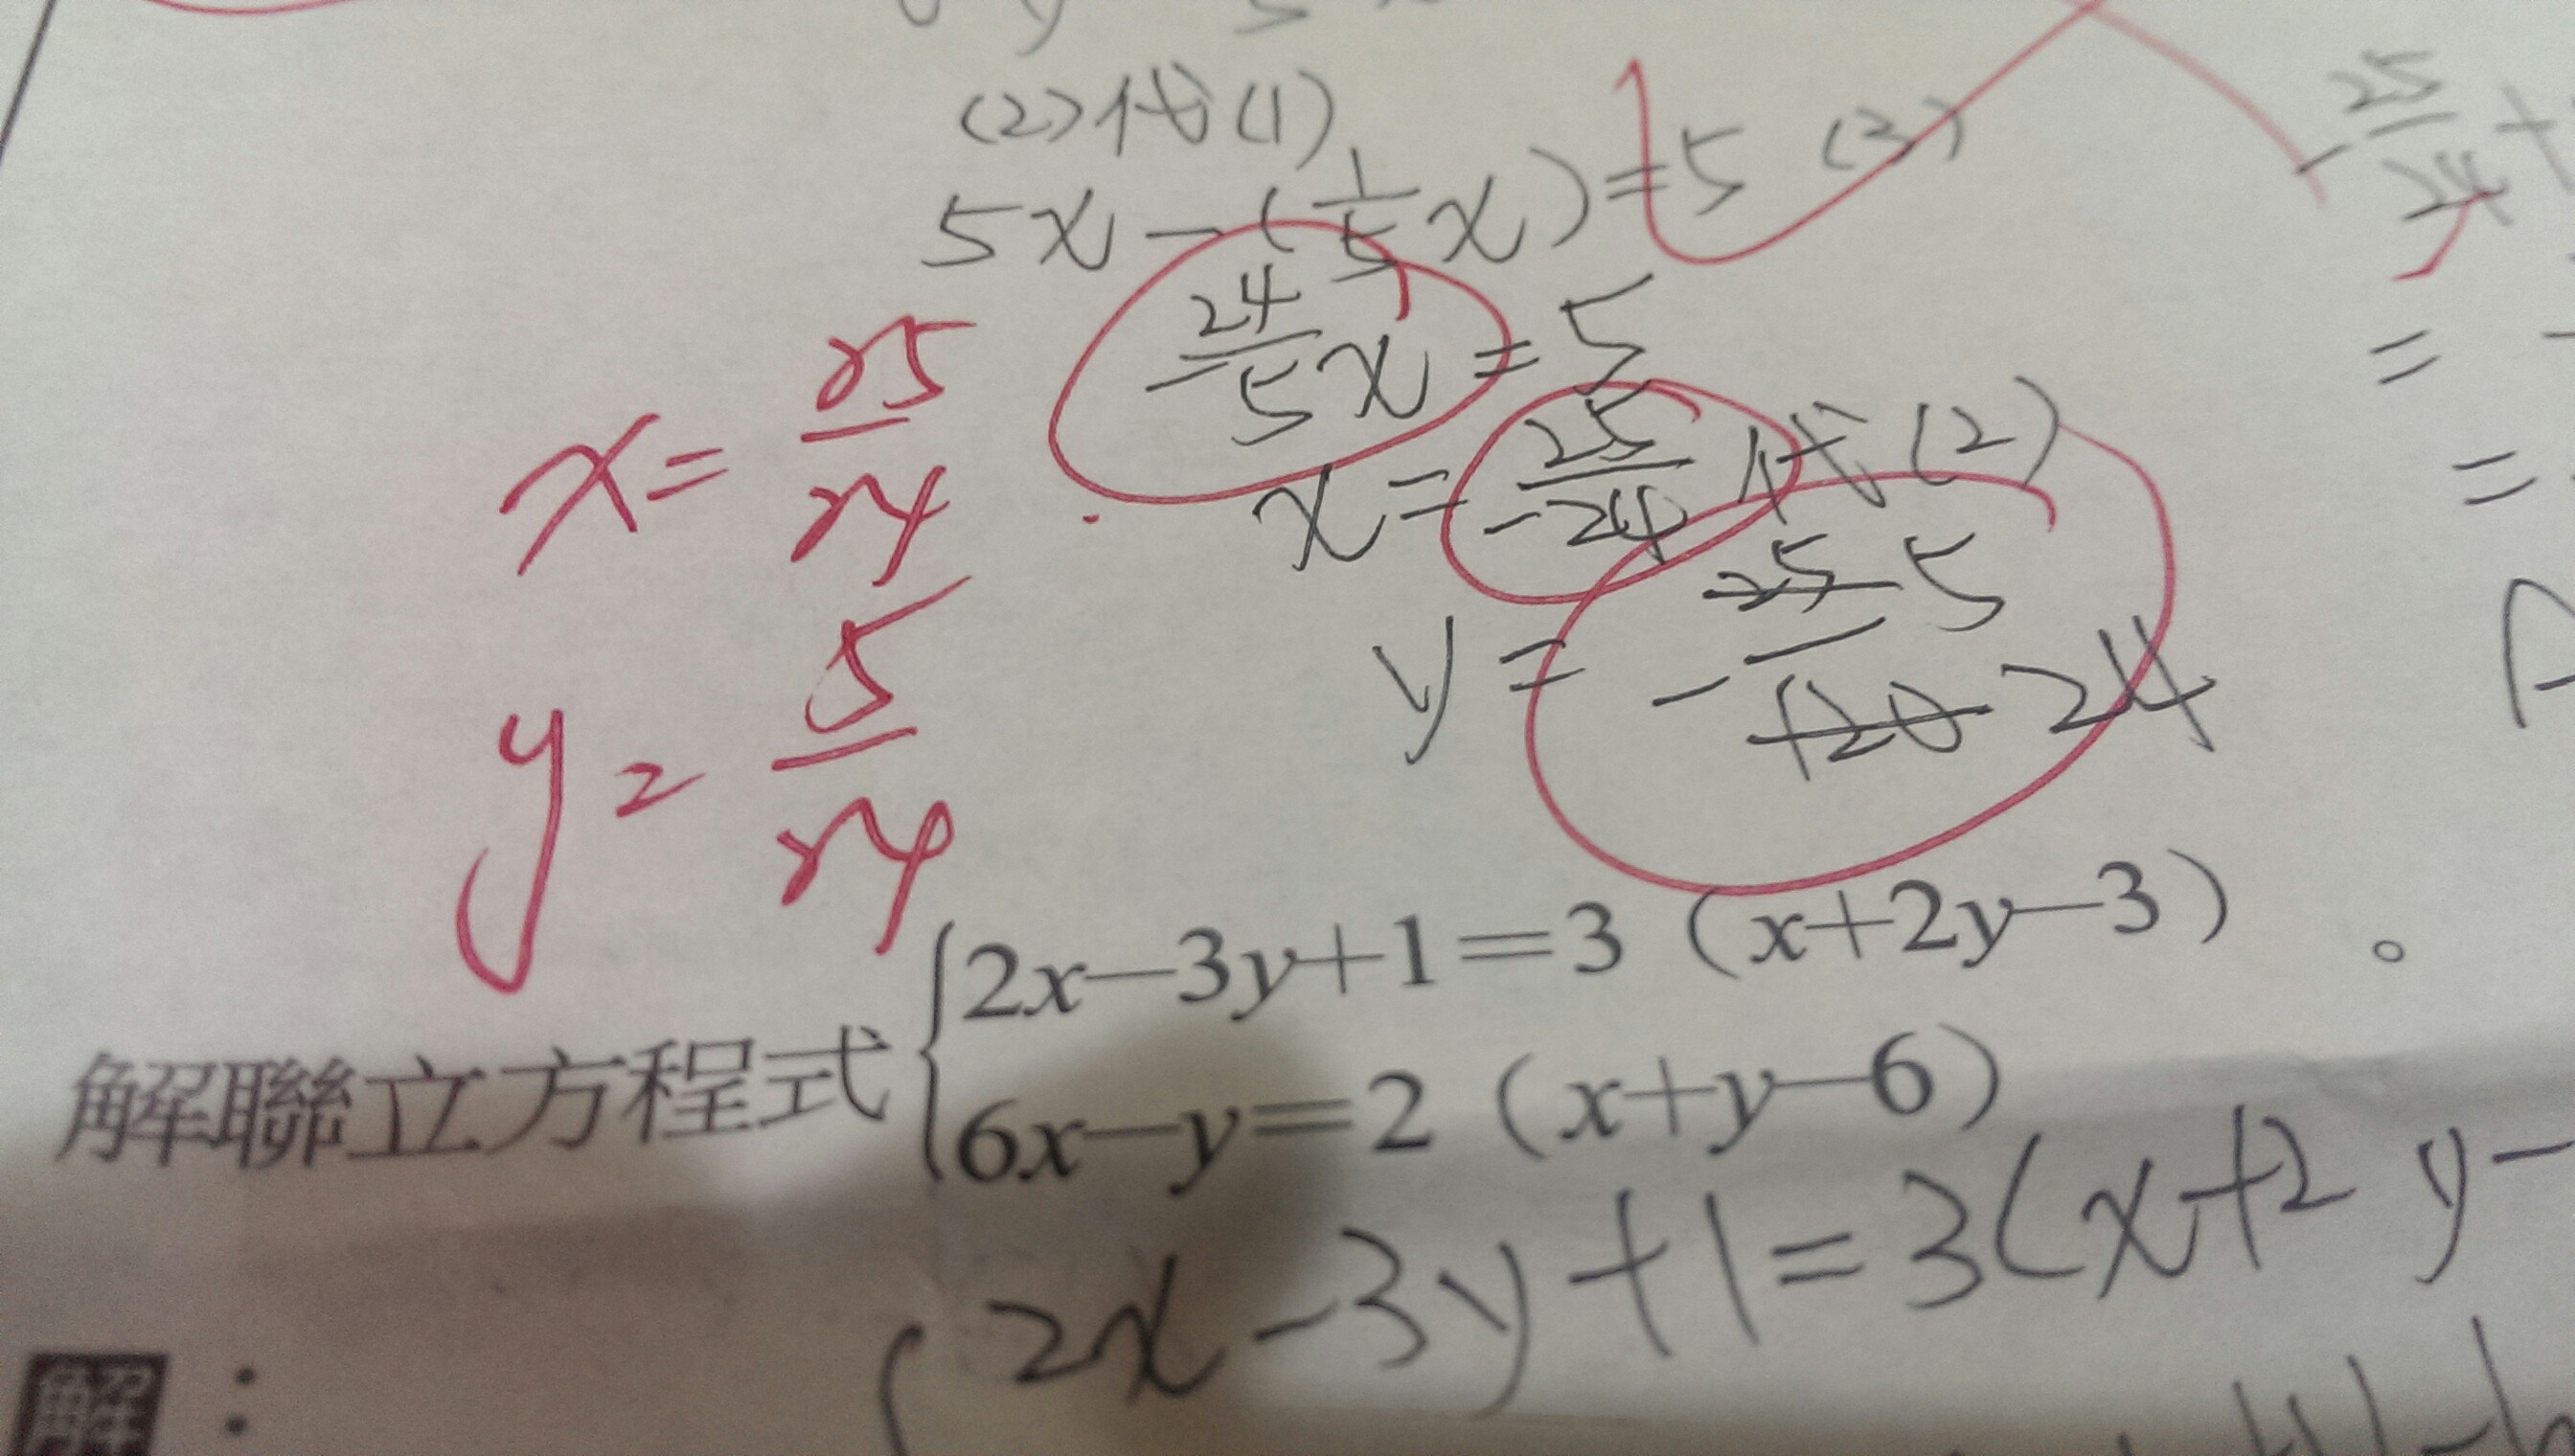 (2)代(1)
5x-(1/5x)=5 (3)
-24/5x=5
x=25/-24 代(2)
y=-5/24
x=25/24
y=5/24
-25/24+
=
=
解聯立方程式{2x-3y+1=3(x+2y-3)
6x-y=2(x+y-6)。
解:
{2x-3y+1=3(x+2y-